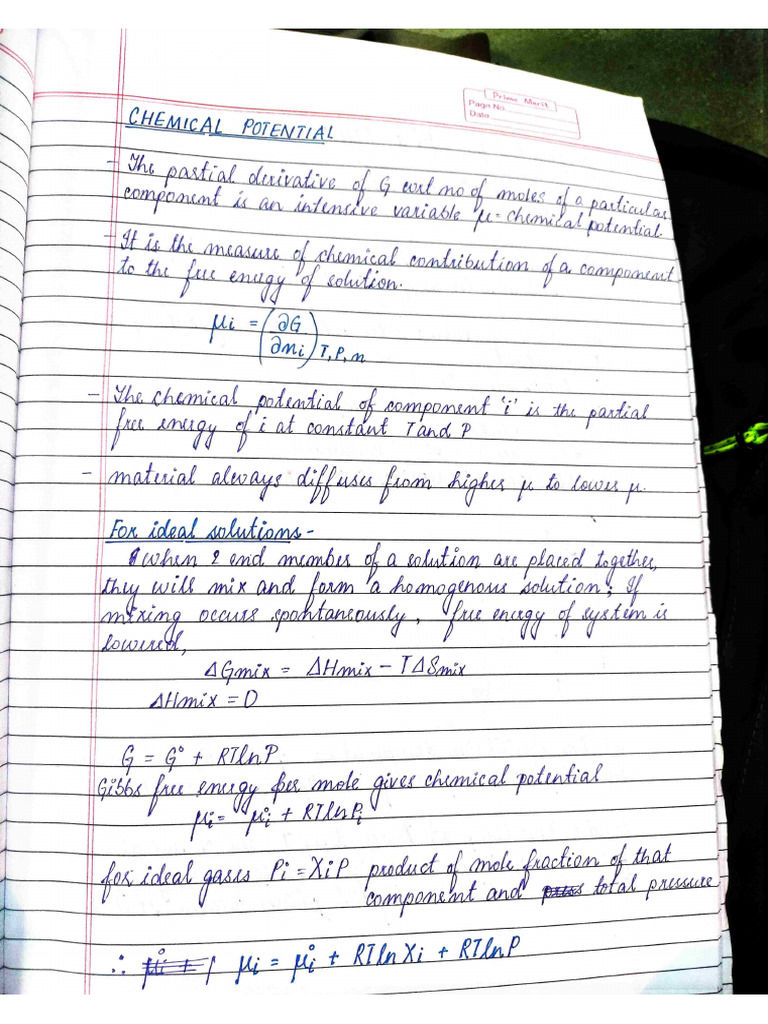 Prime Merit
Page No.
Date
CHEMICAL POTENTIAL
- The partial derivative of G wrt no of moles of a particular
component is an intensive variable μ = chemical potential.
- It is the measure of chemical contribution of a component
to the free energy of solution.
μi = (∂G/∂ni)T,P,n
- The chemical potential of component 'i' is the partial
free energy of i at constant T and P
- material always diffuses from higher μ to lower μ.
For ideal solutions -
when 2 end member of a solution are placed together,
they will mix and form a homogenous solution; If
mixing occurs spontaneously, free energy of system is
lowered,
ΔGmix = ΔHmix - TΔSmix
ΔHmix = 0
G = G° + RTlnP.
Gibbs free energy per mole gives chemical potential
μi = μi° + RTlnPi
for ideal gases Pi = XiP product of mole fraction of that
component and total pressure
∴ μi = μi° + RTlnXi + RTlnP